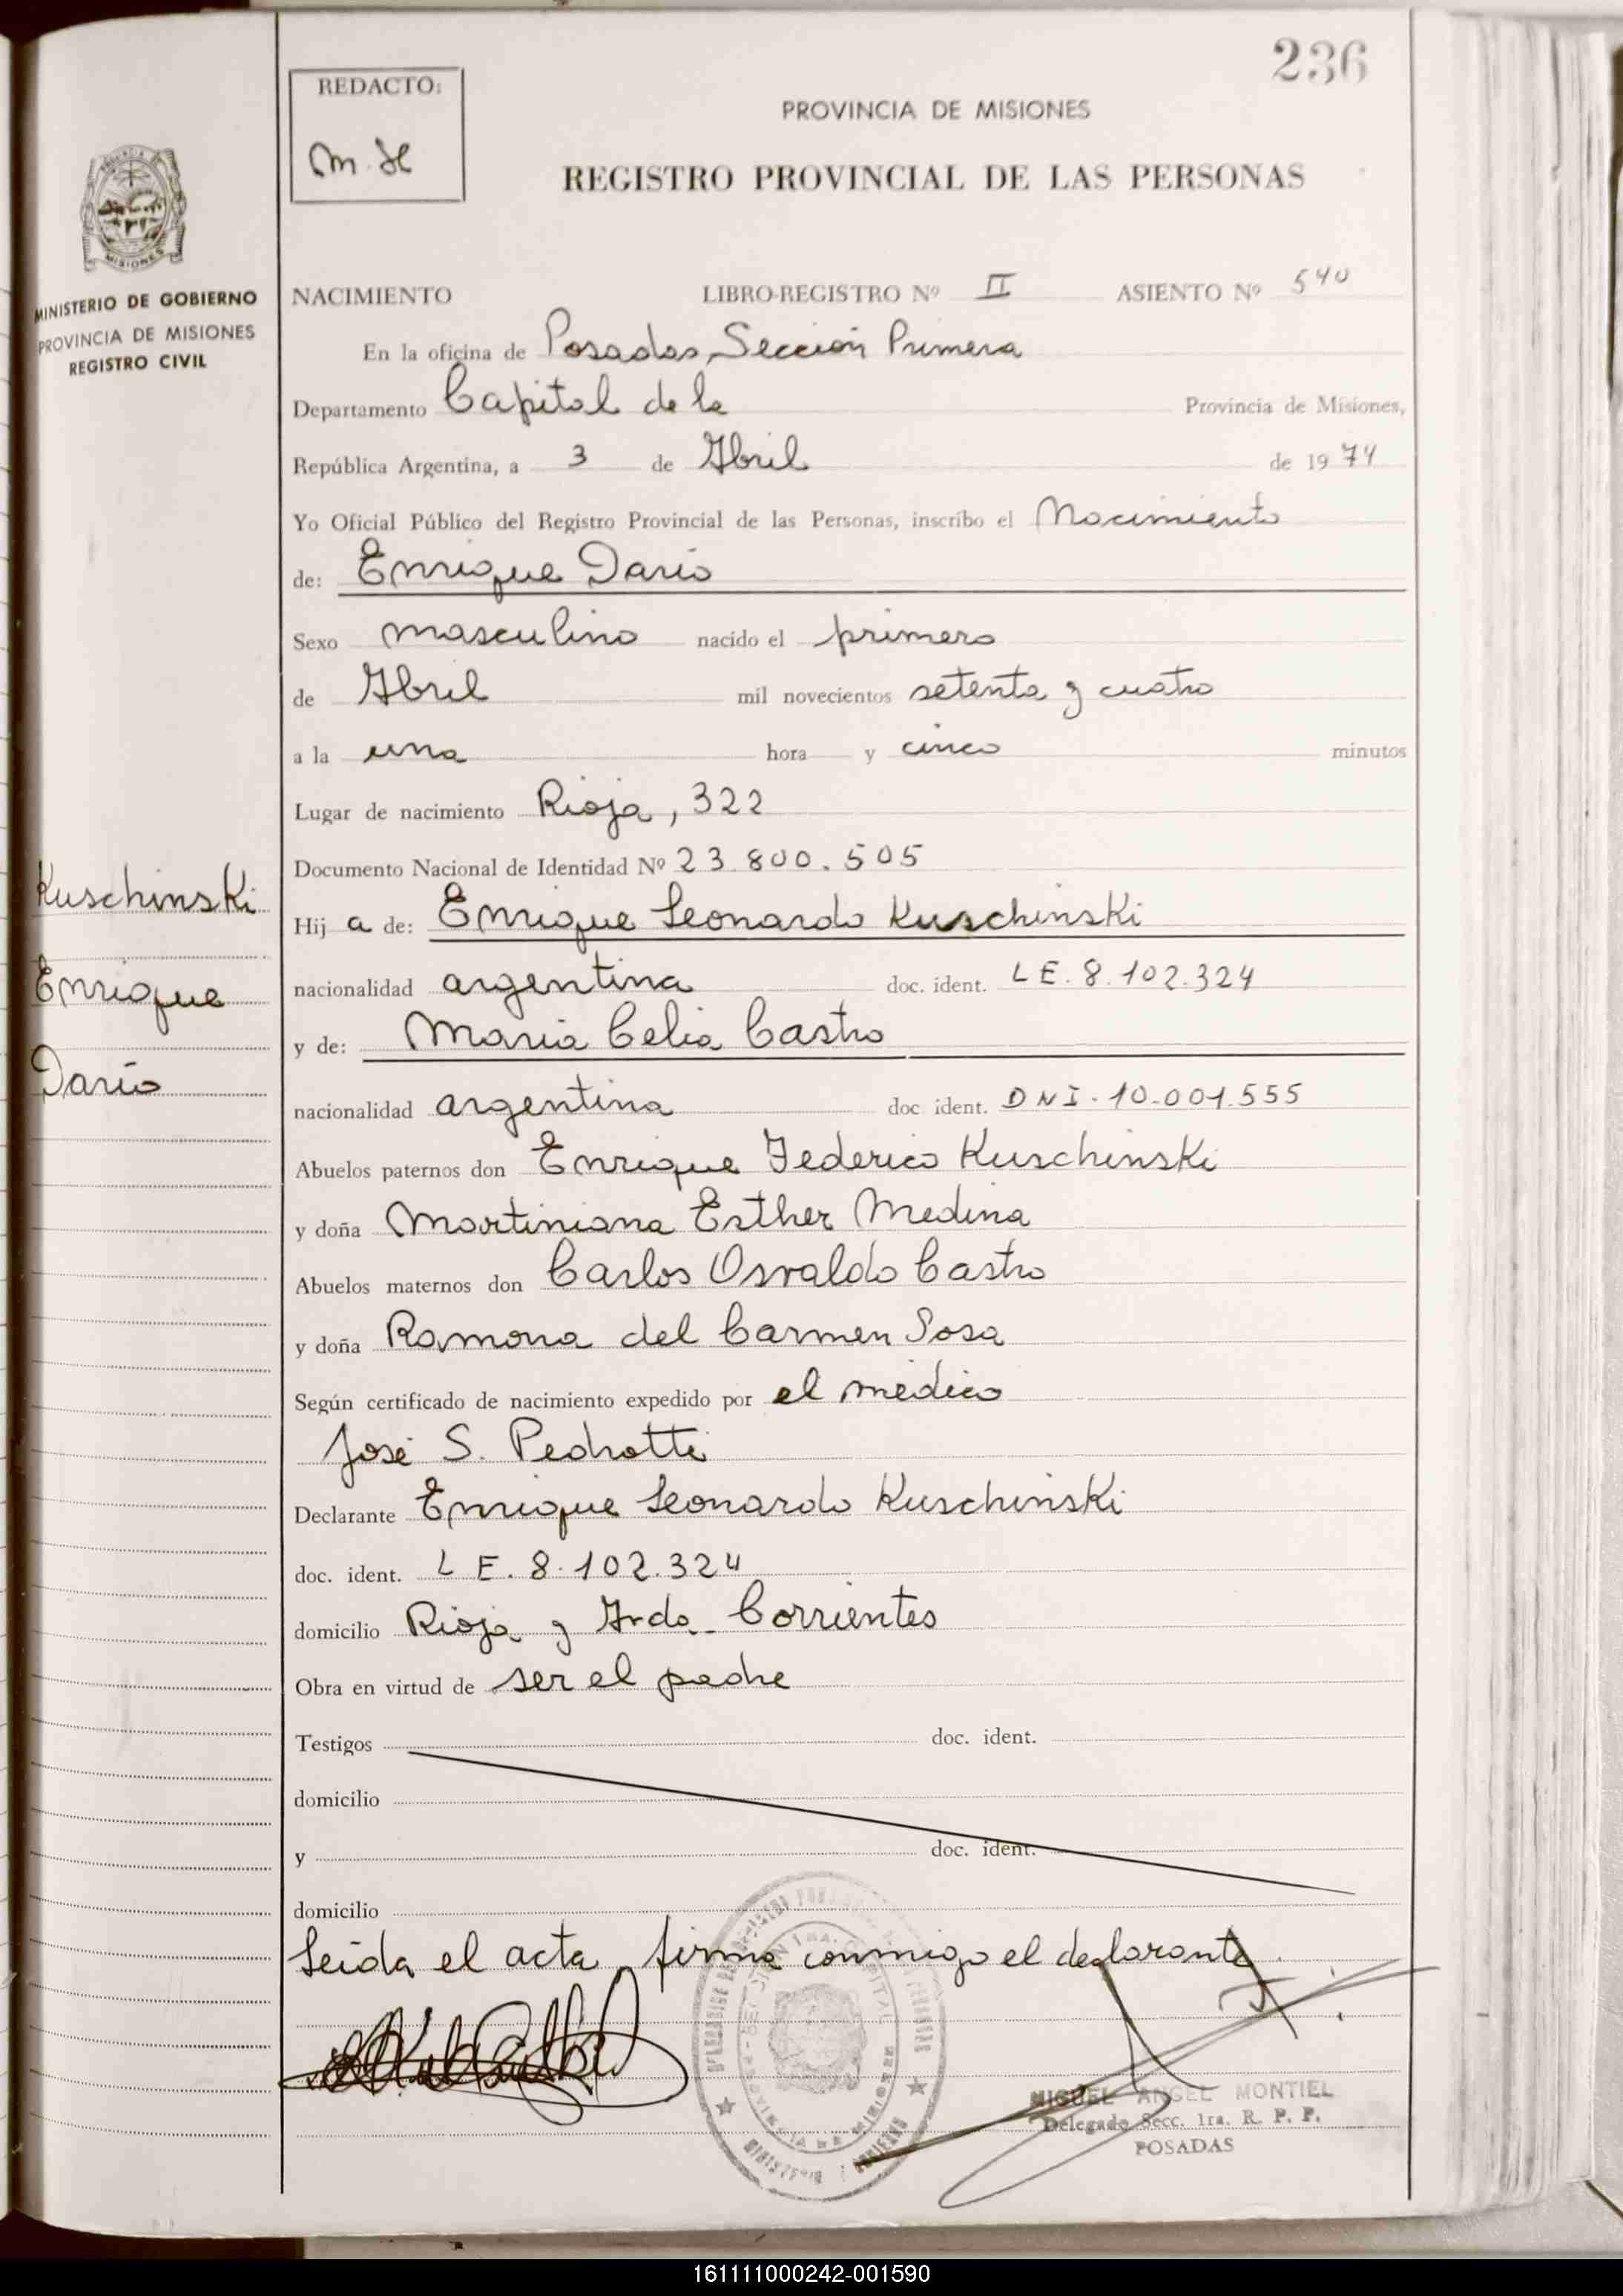 236
REDACTO:
PROVINCIA DE MISIONES
REGISTRO PROVINCIAL DE LAS PERSONAS
MISIONES
MINISTERIO DE GOBIERNO
PROVINCIA DE MISIONES
REGISTRO CIVIL
NACIMIENTO LIBRO-REGISTRO Nº II ASIENTO Nº 540
En la oficina de Posadas, Sección Primera
Departamento Capital de la Provincia de Misiones,
República Argentina, a 3 de Abril de 1974
Yo Oficial Público del Registro Provincial de las Personas, inscribo el Nacimiento
de: Enrique Darío
Sexo masculino nacido el primero
de Abril mil novecientos setenta y cuatro
a la una hora y cinco minutos
Lugar de nacimiento Rioja, 322
Documento Nacional de Identidad Nº 23.800.505
Kuschinski
Enrique
Darío
Hij a de: Enrique Leonardo Kuschinski
nacionalidad argentina doc. ident. LE. 8.102.324
y de: María Celia Castro
nacionalidad argentina doc ident. DNI. 10.001.555
Abuelos paternos don Enrique Federico Kuschinski
y doña Martiniana Esther Medina
Abuelos maternos don Carlos Osvaldo Castro
y doña Ramona del Carmen Sosa
Según certificado de nacimiento expedido por el médico
José S. Pedrotti
Declarante Enrique Leonardo Kuschinski
doc. ident. L E. 8.102.324
domicilio Rioja y Avda. Corrientes
Obra en virtud de ser el padre
Testigos doc. ident.
domicilio
y doc. ident.
domicilio
Leída el acta, firma conmigo el declarante.
MIGUEL ANGEL MONTIEL
Delegado Secc. 1ra. R. P. P.
POSADAS
161111000242-001590